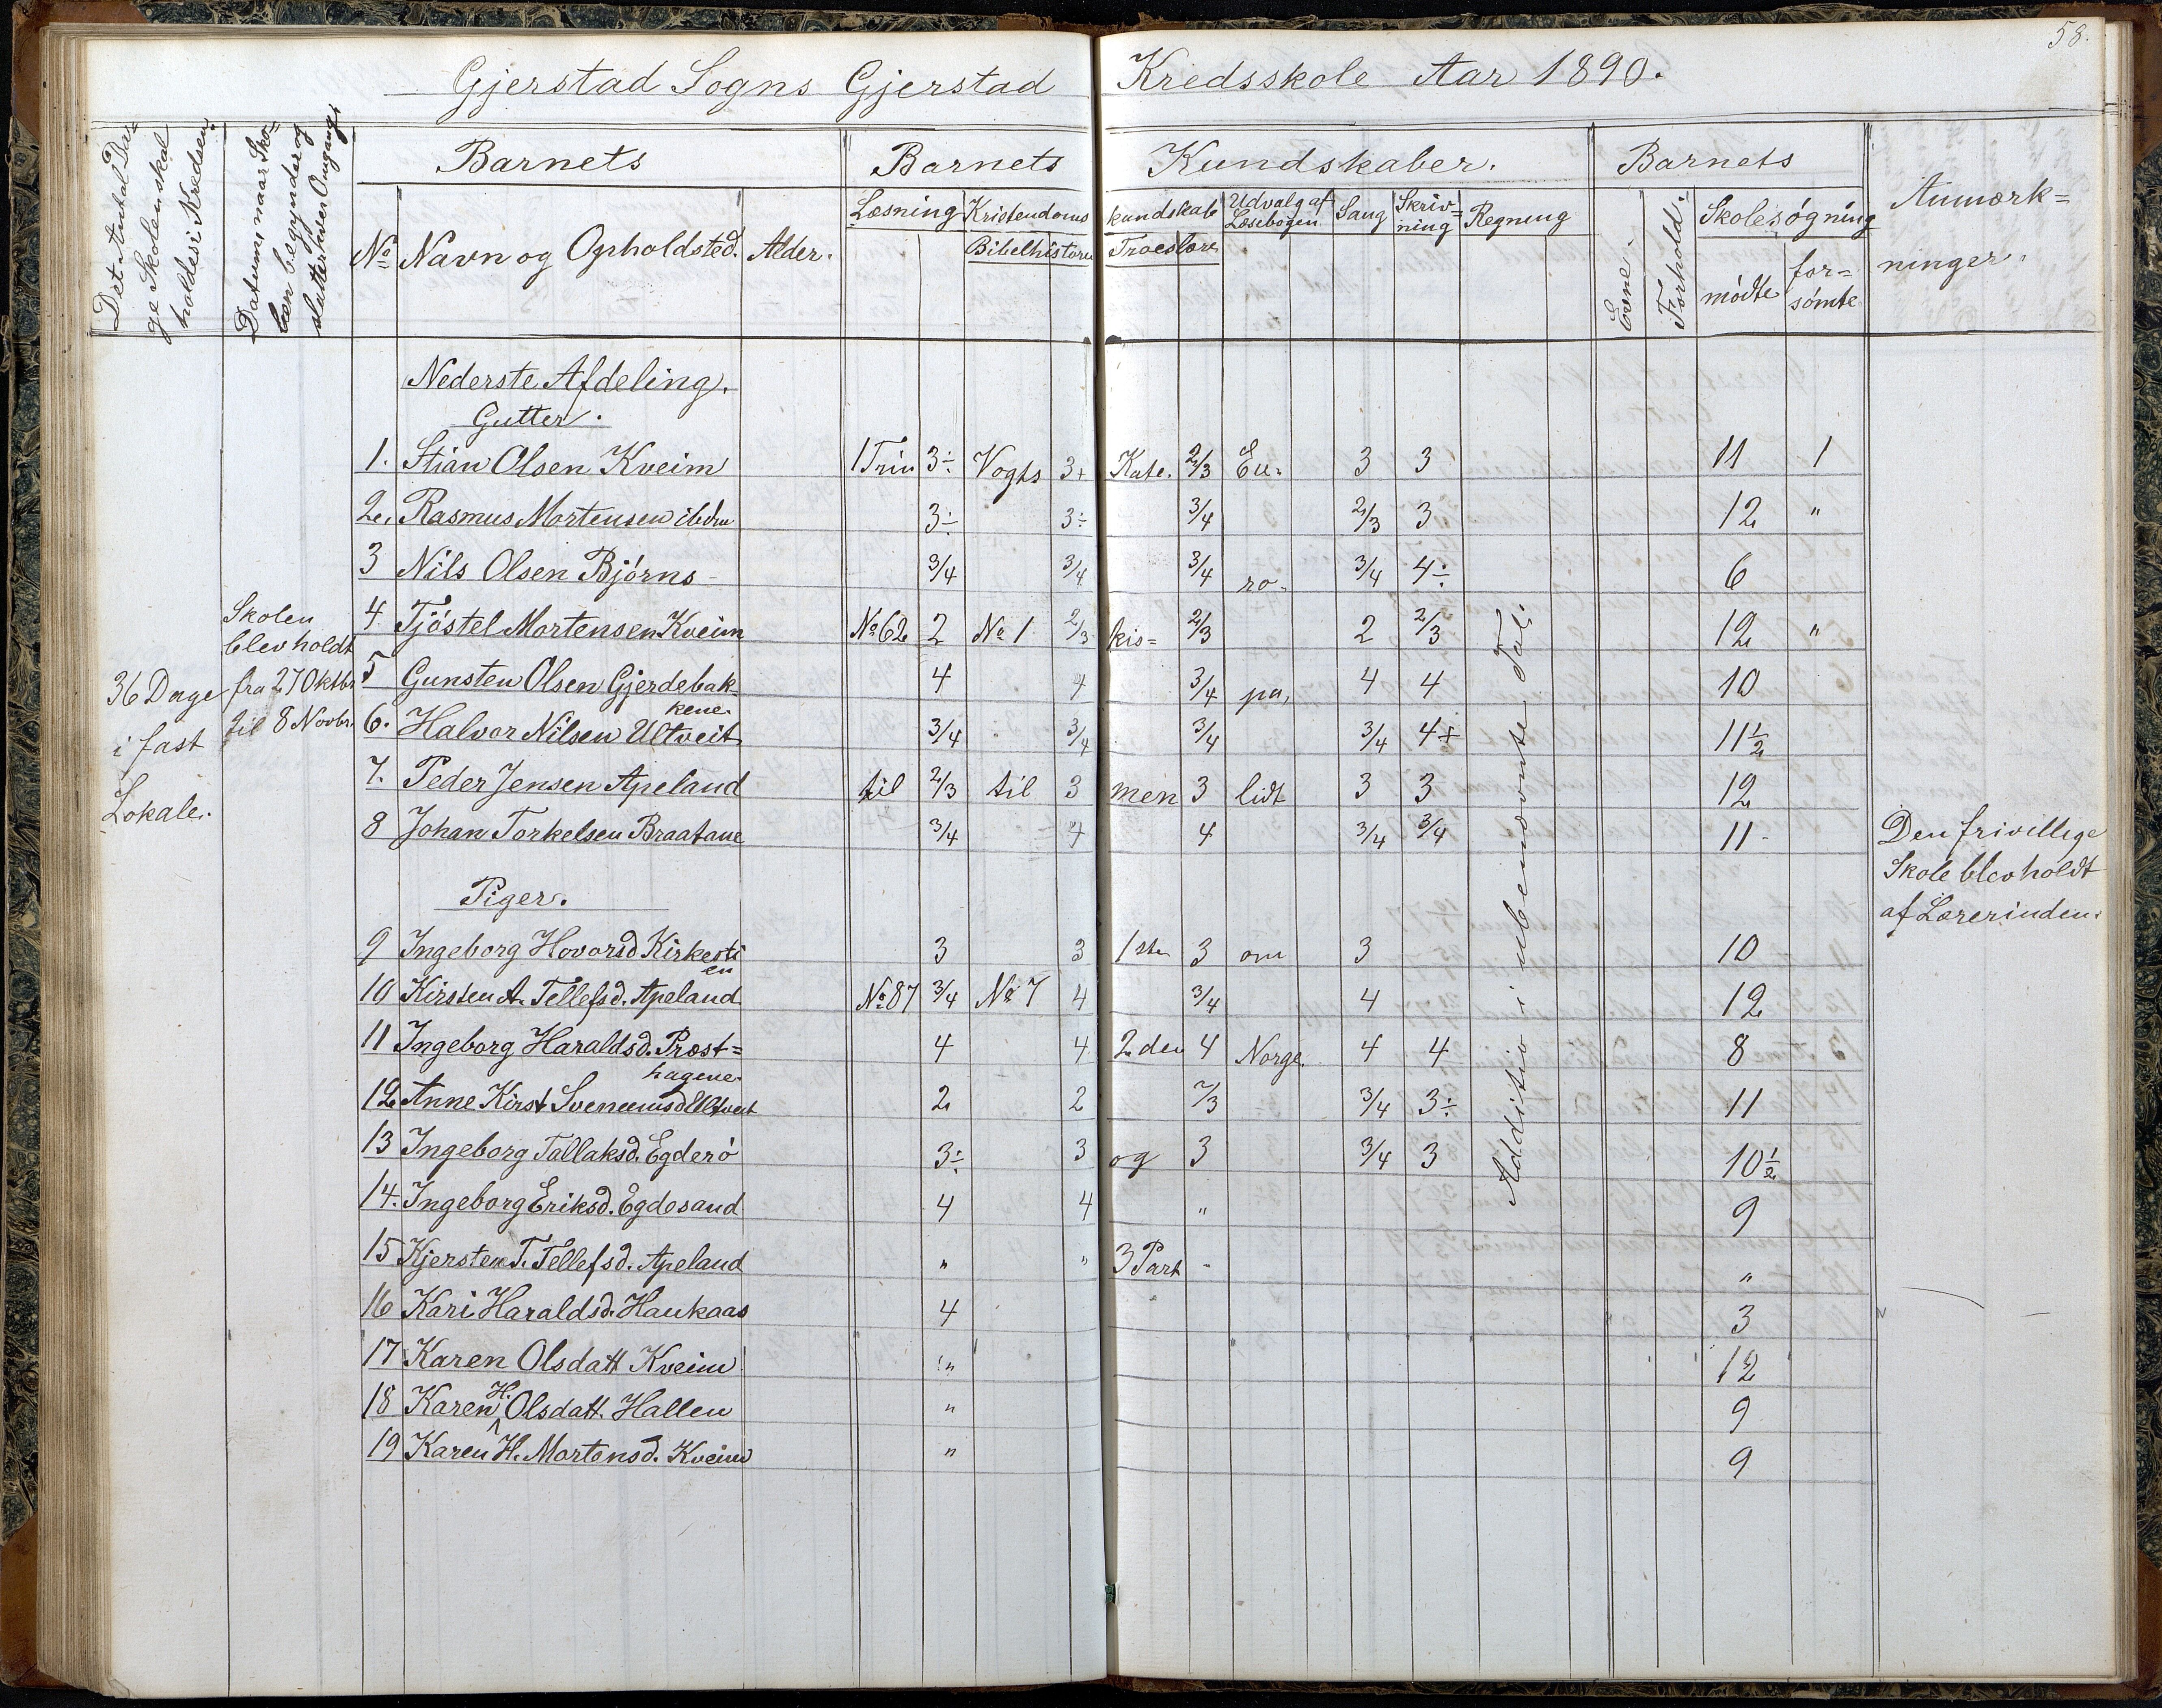 58.
Gjerstad Sogns Gjerstad Kredsskole Aar 1890.
Det Antal Da=
ge Skolen skal
holdes i Kredsen.
Datum, naar Sko=
len begynder og
slutter hver Omgang.
Barnets
Barnets Kundskaber.
Barnets
Anmærk=
ninger.
No Navn og Opholdsted. Alder.
Læsning Kristendoms kundskab Udvalg af Læsebogen Sang Skriv=ning Regning
Bibelhistorie Troeslære
Evne. Forhold. Skolesøgning
mødte for=sømte
Nederste Afdeling.
Gutter.
1. Stian Olsen Kveim 1 Trin 3÷ Vogts 3+ Kate. 2/3 Eu= 3 3 11 1
2. Rasmus Mortensen ibdm 3÷ 3÷ 3/4 2/3 3 12 "
3 Nils Olsen Bjørns 3/4 3/4 3/4 ro= 3/4 4÷ 6
4 Tjøstel Mortensen Kveim No 62 2 No 1 2/3 kis= 2/3 2 2/3 12 "
5 Gunsten Olsen Gjerdebak
kene. 4 4 3/4 pa, 4 4 10
6. Halvor Nilsen Ultveit 3/4 3/4 3/4 3/4 4+ 11 1/2
7. Peder Jensen Apeland til 2/3 til 3 men 3 lidt 3 3 12
8 Johan Torkelsen Braatane 3/4 4 4 3/4 3/4 11
Skolen
blev holdt
fra 27 Oktbr
til 8 Novbr.
36 Dage
i fast
Lokale.
Addition i ubenævnte Tal.
Den frivillige
Skole blev holdt
af Lærerinden.
Piger.
9 Ingeborg Hovorsd Kirkesti
en 3 3 1ste 3 om 3 10
10 Kirsten A. Tellefsd. Apeland No 87 3/4 No 7 4 3/4 4 12
11 Ingeborg Haraldsd. Prost=
hagene. 4 4 2 den 4 Norge. 4 4 8
12 Anne Kirst. Ultveit 2 2 2/3 3/4 3÷ 11
13 Ingeborg Tallaksd. Egderø 3÷ 3 og 3 3/4 3 10 1/2
14. Ingeborg Eriksd. Egdesand 4 4 " 9
15 Kjersten T. Tellefsd. Apeland " " 3 Part - "
16 Kari Haraldsd. Haukaas 4 3
17 Karen Olsdatt Kveim " 12
18 Karen H. Olsdatt. Hallen " 9
19 Karen H. Mortensd. Kveim " 9